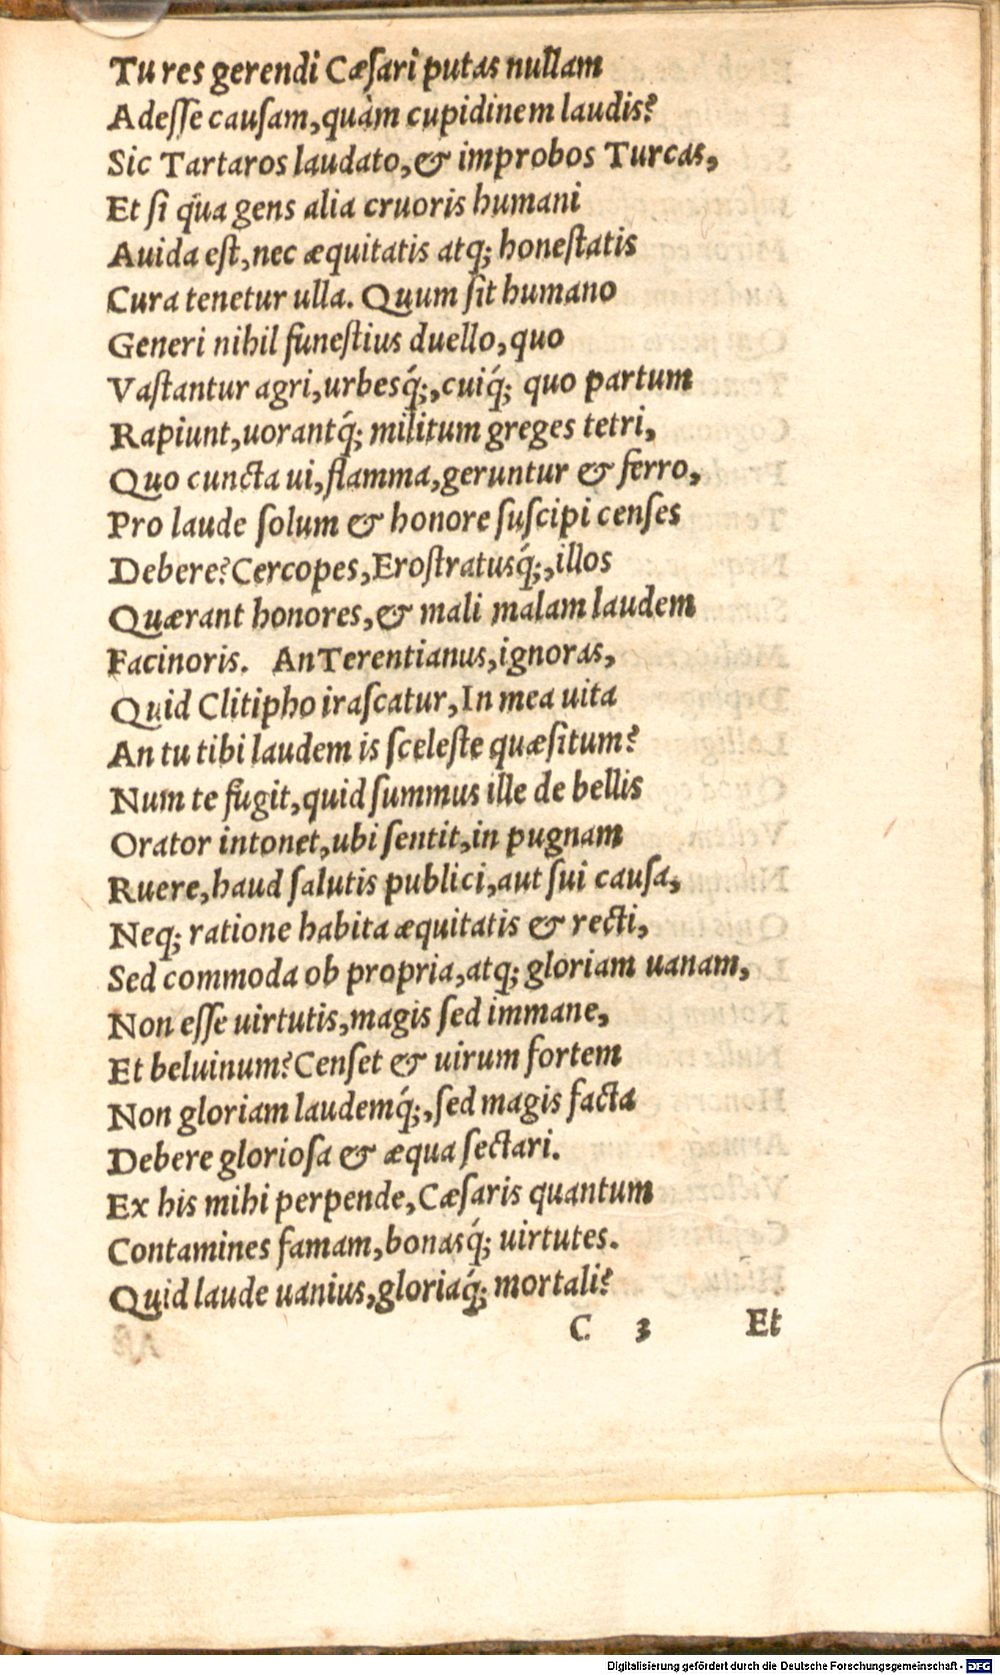 Tu res gerendi Cæſari putas nullam
Adeſſe cauſam, quàm cupidinem laudis?
Sic Tartaros laudato, & improbos Turcas,
Et ſi qua gens alia cruoris humani
Auida eſt, nec æquitatis atq; honeſtatis
Cura tenetur ulla. Quum ſit humano
Generi nihil funeſtius duello, quo
Vaſtantur agri, urbesq́;, cuiq́; quo partum
Rapiunt, uorantq́; militum greges tetri,
Quo cuncta ui, flamma, geruntur & ferro,
Pro laude ſolum & honore ſuſcipi cenſes
Debere? Cercopes, Eroſtratusq́;, illos
Quærant honores, & mali malam laudem
Facinoris. An Terentianus, ignoras,
Quid Clitipho iraſcatur, In mea uita
An tu tibi laudem is ſceleſte quæſitum?
Num te fugit, quid ſummus ille de bellis
Orator intonet, ubi ſentit, in pugnam
Ruere, haud ſalutis publici, aut ſui cauſa,
Neq; ratione habita æquitatis & recti,
Sed commoda ob propria, atq; gloriam uanam,
Non eſſe uirtutis, magis ſed immane,
Et beluinum? Cenſet & uirum fortem
Non gloriam laudemq́;, ſed magis facta
Debere glorioſa & æqua ſectari.
Ex his mihi perpende, Cæſaris quantum
Contamines famam, bonasq́; uirtutes.
Quid laude uanius, gloriaq́; mortali?
C 3 Et
Digitalisierung gefördert durch die Deutsche Forschungsgemeinschaft - DFG